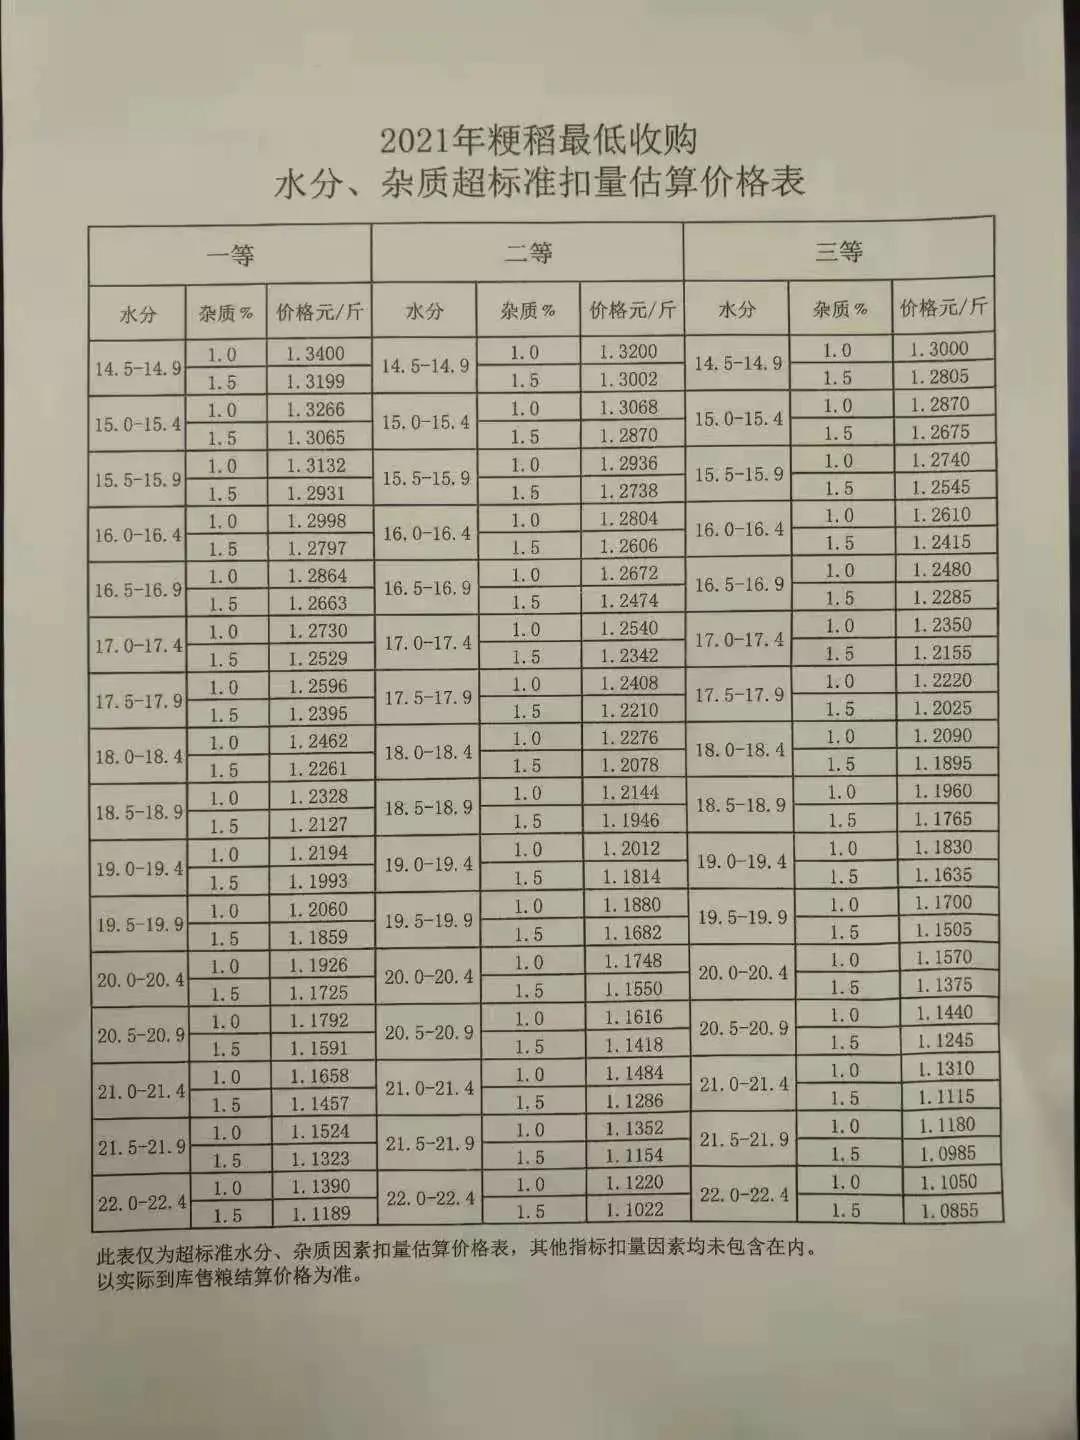 2021年粳稻最低收购
水分、杂质超标准扣量估算价格表
一等 二等 三等
水分 杂质% 价格元/斤 水分 杂质% 价格元/斤 水分 杂质% 价格元/斤
14.5-14.9 1.0 1.3400 14.5-14.9 1.0 1.3200 14.5-14.9 1.0 1.3000
1.5 1.3199 1.5 1.3002 1.5 1.2805
15.0-15.4 1.0 1.3266 15.0-15.4 1.0 1.3068 15.0-15.4 1.0 1.2870
1.5 1.3065 1.5 1.2870 1.5 1.2675
15.5-15.9 1.0 1.3132 15.5-15.9 1.0 1.2936 15.5-15.9 1.0 1.2740
1.5 1.2931 1.5 1.2738 1.5 1.2545
16.0-16.4 1.0 1.2998 16.0-16.4 1.0 1.2804 16.0-16.4 1.0 1.2610
1.5 1.2797 1.5 1.2606 1.5 1.2415
16.5-16.9 1.0 1.2864 16.5-16.9 1.0 1.2672 16.5-16.9 1.0 1.2480
1.5 1.2663 1.5 1.2474 1.5 1.2285
17.0-17.4 1.0 1.2730 17.0-17.4 1.0 1.2540 17.0-17.4 1.0 1.2350
1.5 1.2529 1.5 1.2342 1.5 1.2155
17.5-17.9 1.0 1.2596 17.5-17.9 1.0 1.2408 17.5-17.9 1.0 1.2220
1.5 1.2395 1.5 1.2210 1.5 1.2025
18.0-18.4 1.0 1.2462 18.0-18.4 1.0 1.2276 18.0-18.4 1.0 1.2090
1.5 1.2261 1.5 1.2078 1.5 1.1895
18.5-18.9 1.0 1.2328 18.5-18.9 1.0 1.2144 18.5-18.9 1.0 1.1960
1.5 1.2127 1.5 1.1946 1.5 1.1765
19.0-19.4 1.0 1.2194 19.0-19.4 1.0 1.2012 19.0-19.4 1.0 1.1830
1.5 1.1993 1.5 1.1814 1.5 1.1635
19.5-19.9 1.0 1.2060 19.5-19.9 1.0 1.1880 19.5-19.9 1.0 1.1700
1.5 1.1859 1.5 1.1682 1.5 1.1505
20.0-20.4 1.0 1.1926 20.0-20.4 1.0 1.1748 20.0-20.4 1.0 1.1570
1.5 1.1725 1.5 1.1550 1.5 1.1375
20.5-20.9 1.0 1.1792 20.5-20.9 1.0 1.1616 20.5-20.9 1.0 1.1440
1.5 1.1591 1.5 1.1418 1.5 1.1245
21.0-21.4 1.0 1.1658 21.0-21.4 1.0 1.1484 21.0-21.4 1.0 1.1310
1.5 1.1457 1.5 1.1286 1.5 1.1115
21.5-21.9 1.0 1.1524 21.5-21.9 1.0 1.1352 21.5-21.9 1.0 1.1180
1.5 1.1323 1.5 1.1154 1.5 1.0985
22.0-22.4 1.0 1.1390 22.0-22.4 1.0 1.1220 22.0-22.4 1.0 1.1050
1.5 1.1189 1.5 1.1022 1.5 1.0855
此表仅为超标准水分、杂质因素扣量估算价格表，其他指标扣量因素均未包含在内。
以实际到库售粮结算价格为准。